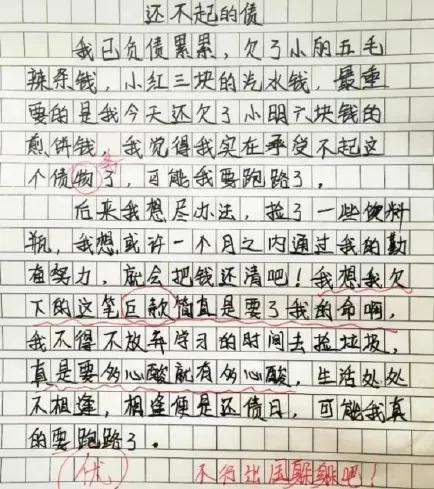 还不起的债
我已负债累累，欠了小朋五毛
辣条钱，小红三块的汽水钱，最重
要的是我今天还欠了小明六块钱的
煎饼钱，我觉得我实在承受不起这
务
个债物了，可能我要跑路了。
后来我想尽办法，捡了一些饮料
瓶，我想或许一个月之内通过我的勤
奋努力，就会把钱还清吧！我想我欠
下的这笔巨款简直是要了我的命啊，
我不得不放弃学习的时间去捡垃圾，
真是要多心酸就有多心酸，生活处处
不相逢，相逢便是还债日，可能我真
的要跑路了。
优
不行出国躲躲吧！